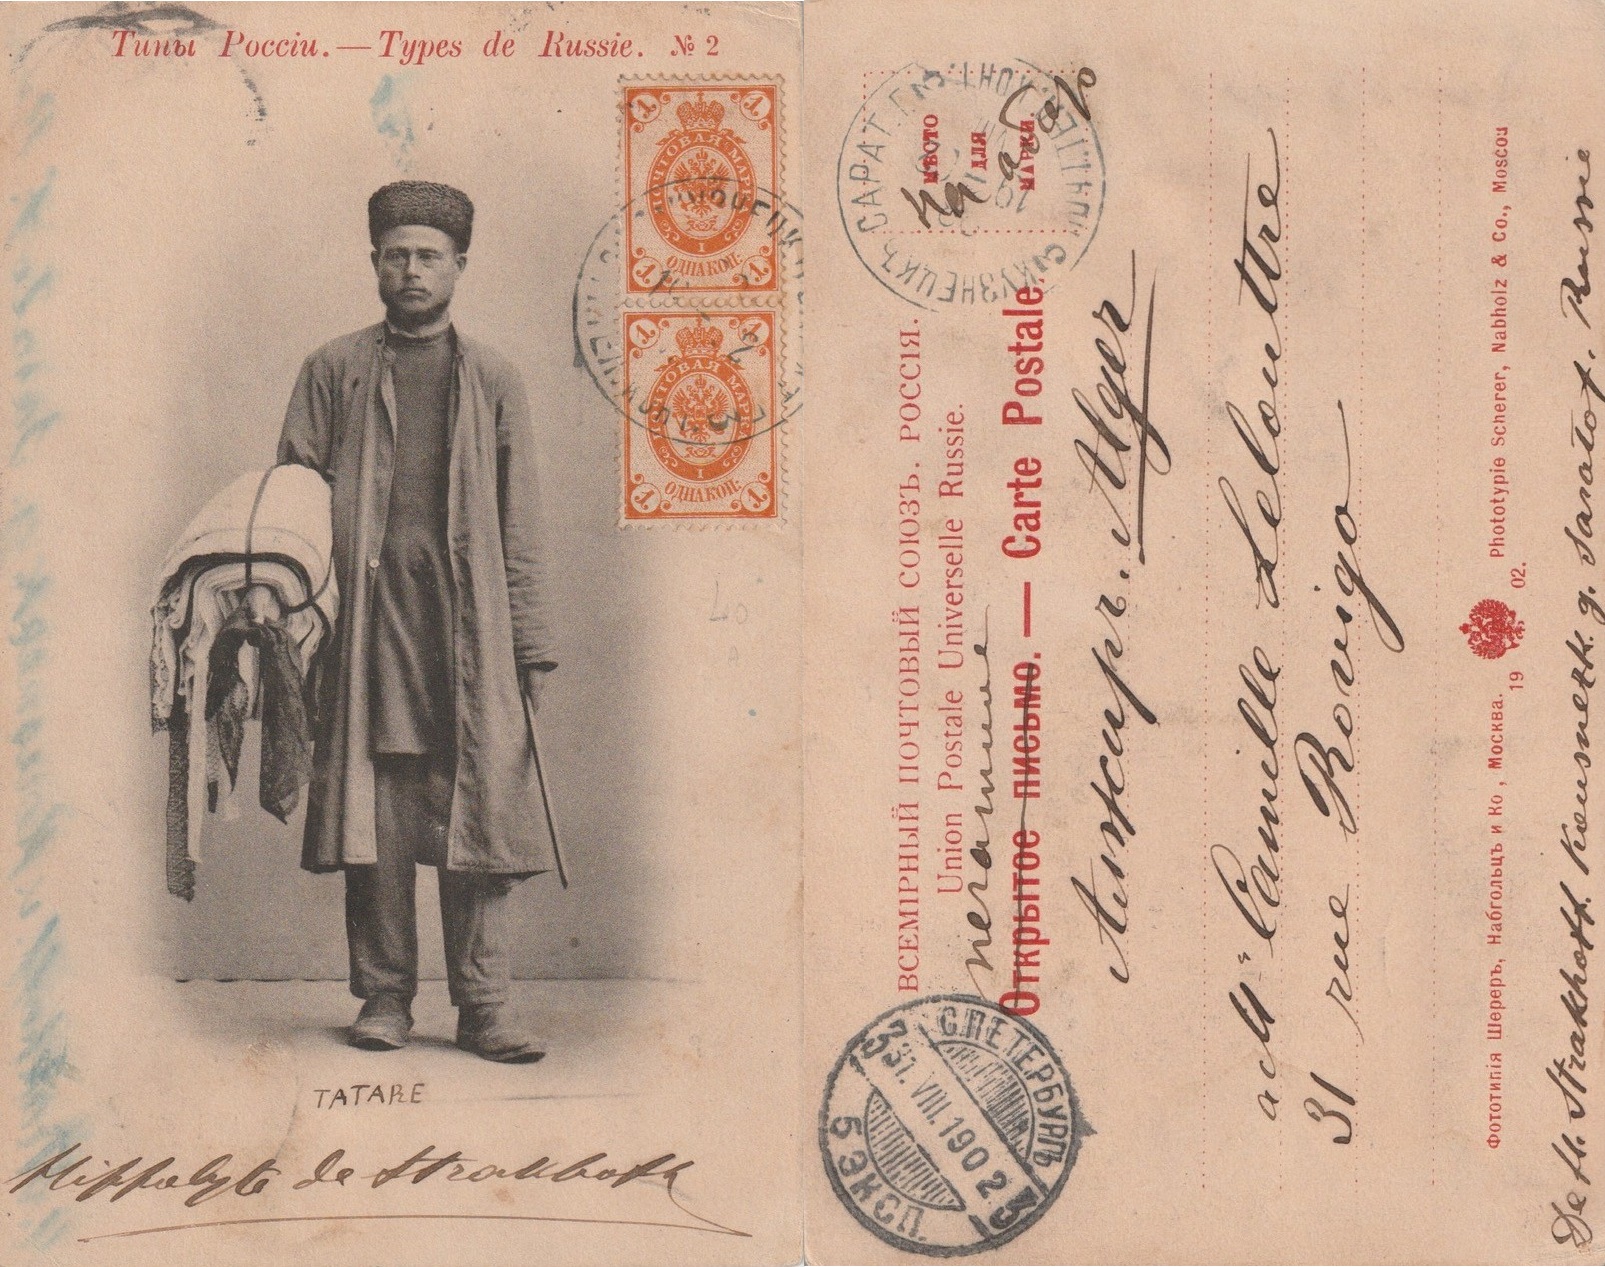 Типы Россіи.—Types de Russie. № 2
1 1
ПОЧТОВАЯ МАРКА
1
ОДНА КОП:
1 1
1 1
ПОЧТОВАЯ МАРКА
1
ОДНА КОП:
1 1
TATARE
Hippolyte de Strakhoff
МѢСТО
ДЛЯ
МАРКИ
КУЗНЕЦКЪ САРАТ. Г.
ВСЕМІРНЫЙ ПОЧТОВЫЙ СОЮЗЪ. РОССІЯ.
Union Postale Universelle Russie.
печатное
Открытое письмо. — Carte Postale.
Алжиръ. Alger
a Mr Camille Lecouttre
31 rue Rovigo
С.ПЕТЕРБУРГЪ
31.VIII.1902
5 ЭКСП. 3
Фототипія Шереръ, Набгольцъ и Ко, Москва. 19 02. Phototypie Scherer, Nabholz & Co., Moscou
De H. Strakhoff. Kousnetzk. g. Saratof. Russie